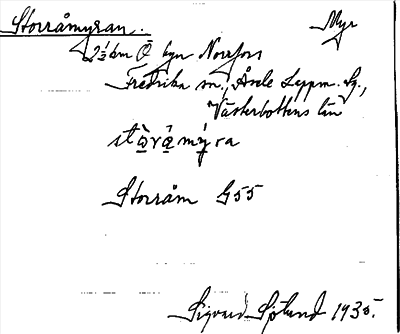 Storråmyran. Myr
2½ km Ö byn Norrfors
Fredrika sn., Åsele Lappm. lg.,
Västerbottens län
stò̱rå̱mý̱ra
Storråm G55
Sigvard Sjölund 1935.